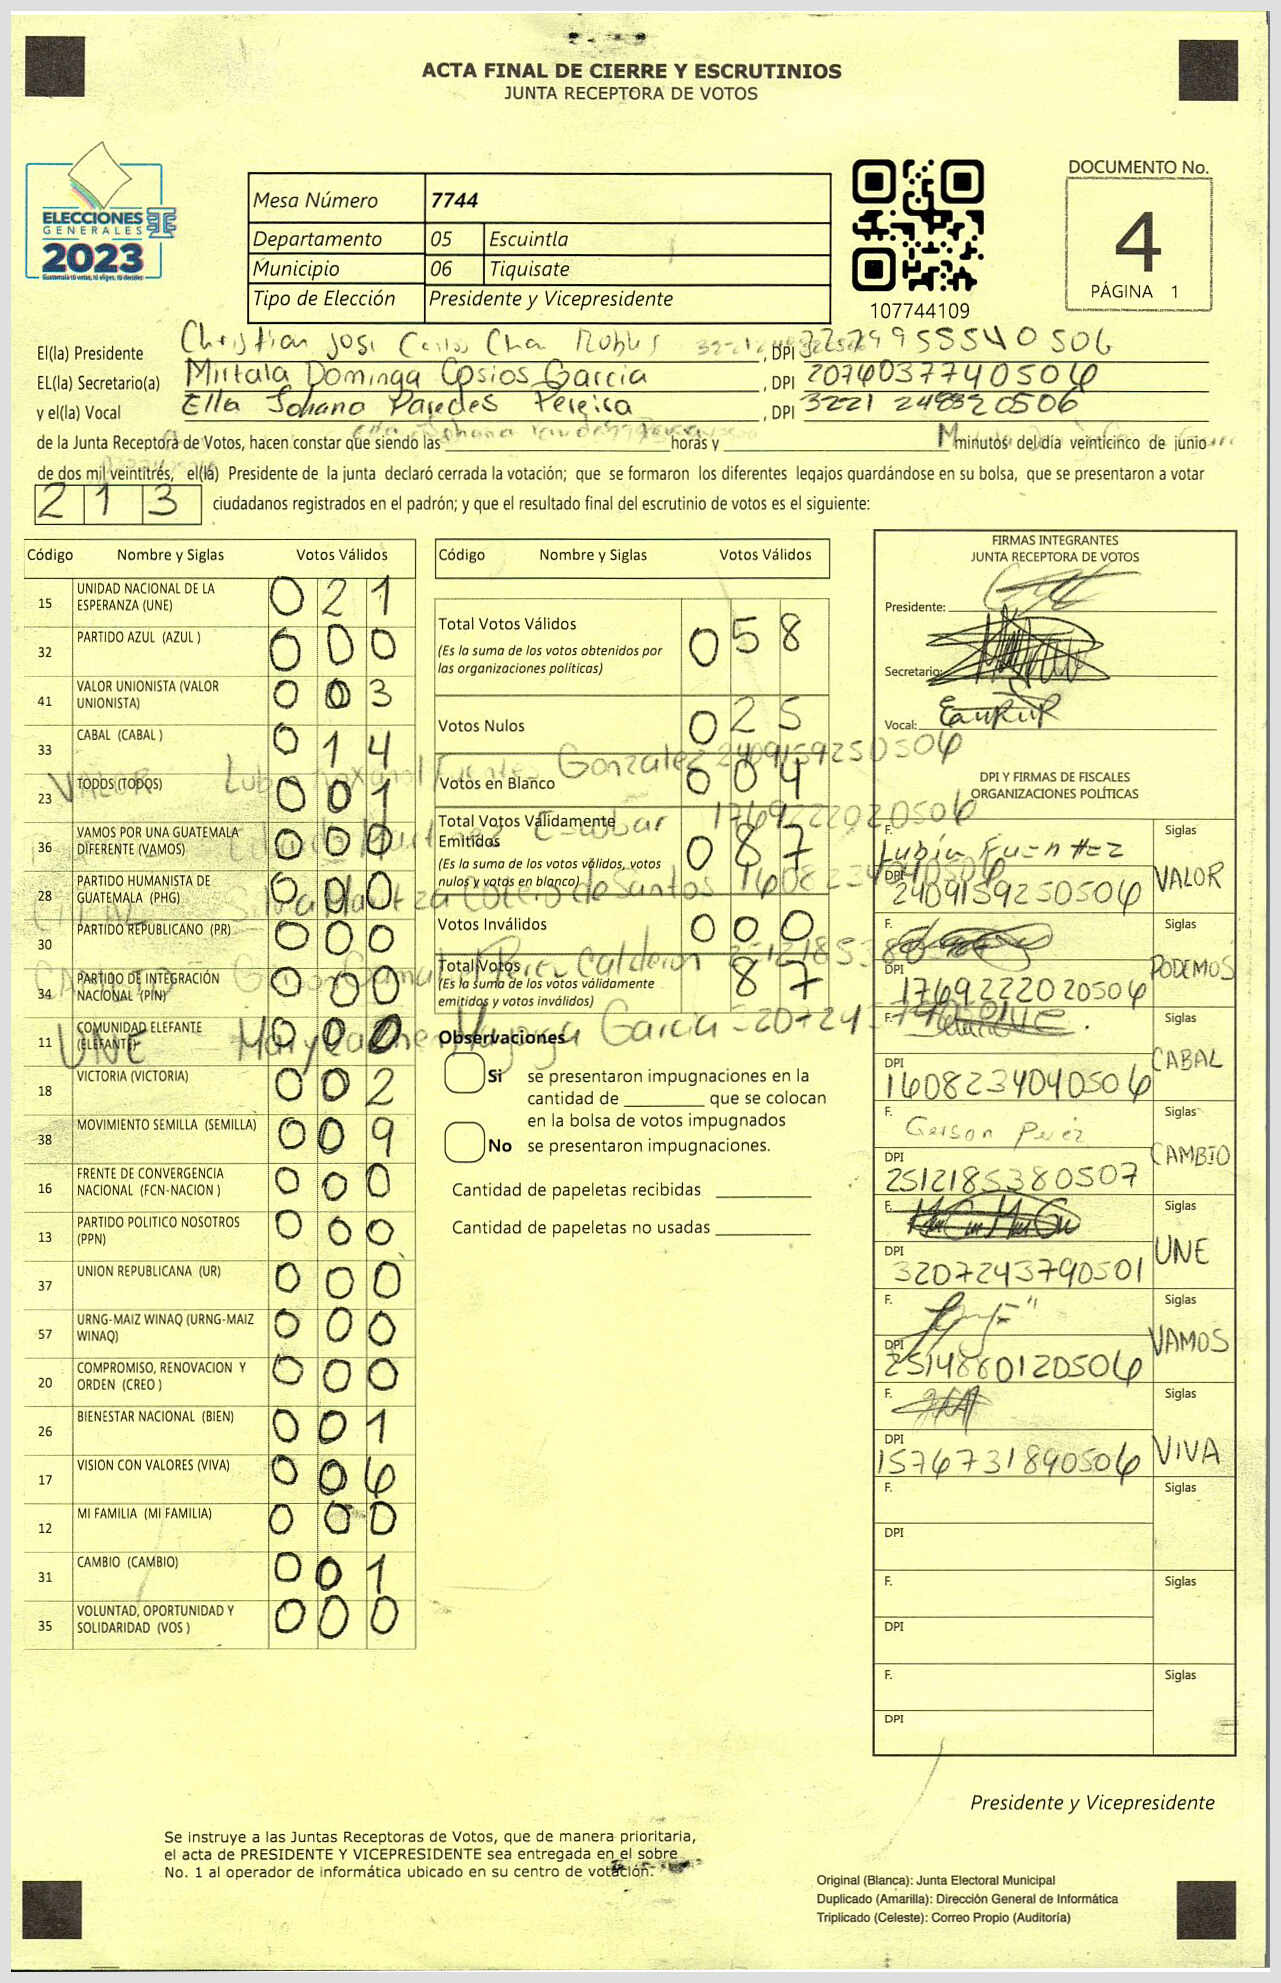 ACTA FINAL DE CIERRE Y ESCRUTINIOS
JUNTA RECEPTORA DE VOTOS
ELECCIONES
GENERALES
2023
Mesa Número 7744
Departamento 05 Escuintla
Municipio 06 Tiquisate
Tipo de Elección Presidente y Vicepresidente
107744109
DOCUMENTO No.
4
PÁGINA 1
El(la) Presidente Christian José Carlos , DPI
EL(la) Secretario(a) Mirtala Dominga Cosios Garcia , DPI 2076037740506
y el(la) Vocal Ella Johana Paredes Pereira , DPI 3221
de la Junta Receptora de Votos, hacen constar que siendo las horas y minutos del día veinticinco de junio
de dos mil veintitrés, el(la) Presidente de la junta declaró cerrada la votación; que se formaron los diferentes legajos guardándose en su bolsa, que se presentaron a votar
213 ciudadanos registrados en el padrón; y que el resultado final del escrutinio de votos es el siguiente:
Código Nombre y Siglas Votos Válidos
15 UNIDAD NACIONAL DE LA ESPERANZA (UNE) 021
32 PARTIDO AZUL (AZUL ) 000
41 VALOR UNIONISTA (VALOR UNIONISTA) 003
33 CABAL (CABAL ) 014
23 TODOS (TODOS) 001
36 VAMOS POR UNA GUATEMALA DIFERENTE (VAMOS) 000
28 PARTIDO HUMANISTA DE GUATEMALA (PHG) 000
30 PARTIDO REPUBLICANO (PR) 000
34 PARTIDO DE INTEGRACIÓN NACIONAL (PIN) 000
11 COMUNIDAD ELEFANTE (ELEFANTE) 000
18 VICTORIA (VICTORIA) 002
38 MOVIMIENTO SEMILLA (SEMILLA) 009
16 FRENTE DE CONVERGENCIA NACIONAL (FCN-NACION ) 000
13 PARTIDO POLITICO NOSOTROS (PPN) 000
37 UNION REPUBLICANA (UR) 000
57 URNG-MAIZ WINAQ (URNG-MAIZ WINAQ) 000
20 COMPROMISO, RENOVACION Y ORDEN (CREO ) 000
26 BIENESTAR NACIONAL (BIEN) 001
17 VISION CON VALORES (VIVA) 006
12 MI FAMILIA (MI FAMILIA) 000
31 CAMBIO (CAMBIO) 001
35 VOLUNTAD, OPORTUNIDAD Y SOLIDARIDAD (VOS ) 000
Código Nombre y Siglas Votos Válidos
Total Votos Válidos 058
(Es la suma de los votos obtenidos por
las organizaciones políticas)
Votos Nulos 025
Votos en Blanco 004
Total Votos Válidamente
Emitidos 087
(Es la suma de los votos válidos, votos
nulos y votos en blanco)
Votos Inválidos 000
Total Votos 87
(Es la suma de los votos válidamente
emitidos y votos inválidos)
VALOR Gonzalez 2409159250506
Escobar 1769222020506
de Santos 1608234040506
Calderon
UNE Garcia
Observaciones
Si se presentaron impugnaciones en la
cantidad de que se colocan
en la bolsa de votos impugnados
No se presentaron impugnaciones.
Cantidad de papeletas recibidas
Cantidad de papeletas no usadas
FIRMAS INTEGRANTES
JUNTA RECEPTORA DE VOTOS
Presidente:
Secretario:
Vocal:
DPI Y FIRMAS DE FISCALES
ORGANIZACIONES POLÍTICAS
F. Siglas
DPI 2409159250506 VALOR
F. Siglas
DPI 1769222020506 PODEMOS
F. Siglas
DPI 1608234040506 CABAL
F. Gerson Perez Siglas
DPI 2512185380507 CAMBIO
F. Siglas
DPI 3207243790501 UNE
F. Siglas
DPI 2514880120506 VAMOS
F. Siglas
DPI 1576731890506 VIVA
F. Siglas
DPI
F. Siglas
DPI
F. Siglas
DPI
Presidente y Vicepresidente
Se instruye a las Juntas Receptoras de Votos, que de manera prioritaria,
el acta de PRESIDENTE Y VICEPRESIDENTE sea entregada en el sobre
No. 1 al operador de informática ubicado en su centro de votación.
Original (Blanca): Junta Electoral Municipal
Duplicado (Amarilla): Dirección General de Informática
Triplicado (Celeste): Correo Propio (Auditoría)